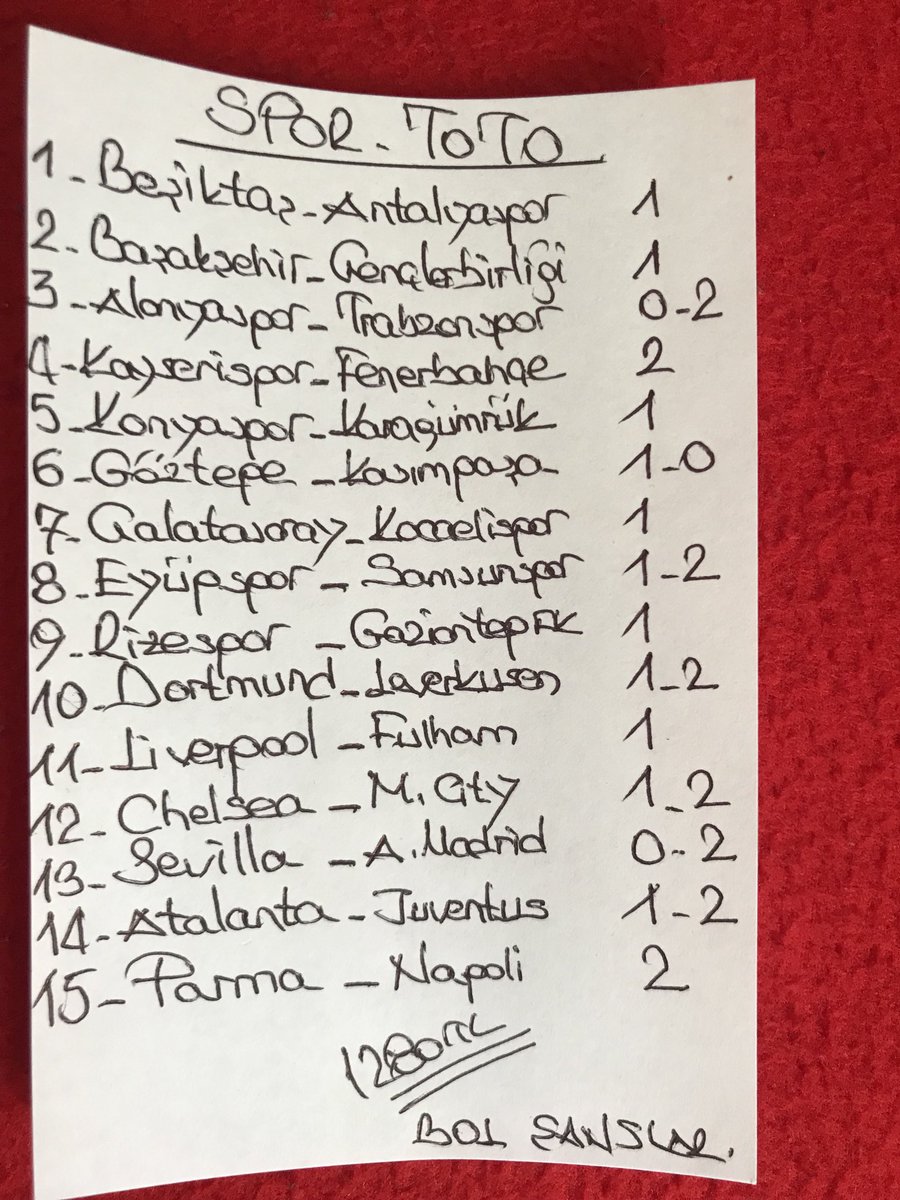 SPOR-TOTO
1-Beşiktaş-Antalyaspor 1
2-Başakşehir-Gençlerbirliği 1
3-Alanyaspor-Trabzonspor 0-2
4-Kayserispor-Fenerbahçe 2
5-Konyaspor-Karagümrük 1
6-Göztepe-Kasımpaşa 1-0
7-Galatasaray-Kocaelispor 1
8-Eyüpspor-Samsunspor 1-2
9-Rizespor-Gaziantep FK 1
10-Dortmund-Laverkusen 1-2
11-Liverpool-Fulham 1
12-Chelsea-M. City 1-2
13-Sevilla-A. Madrid 0-2
14-Atalanta-Juventus 1-2
15-Parma-Napoli 2
1280TL
BOL ŞANSLAR.